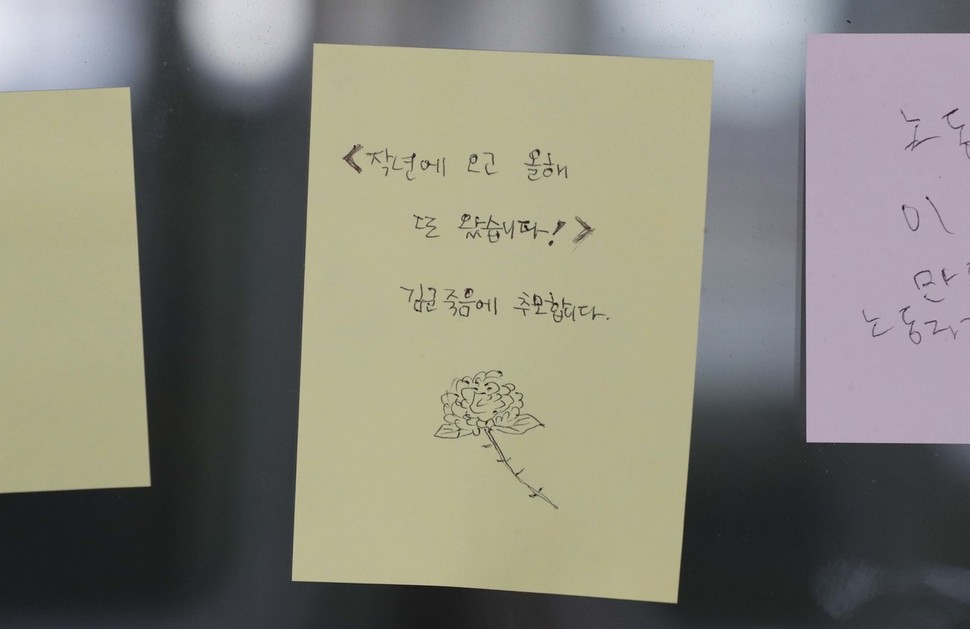 <작년에 오고 올해
또 왔습니다!>
김군죽음에 추모합니다.
노동
이